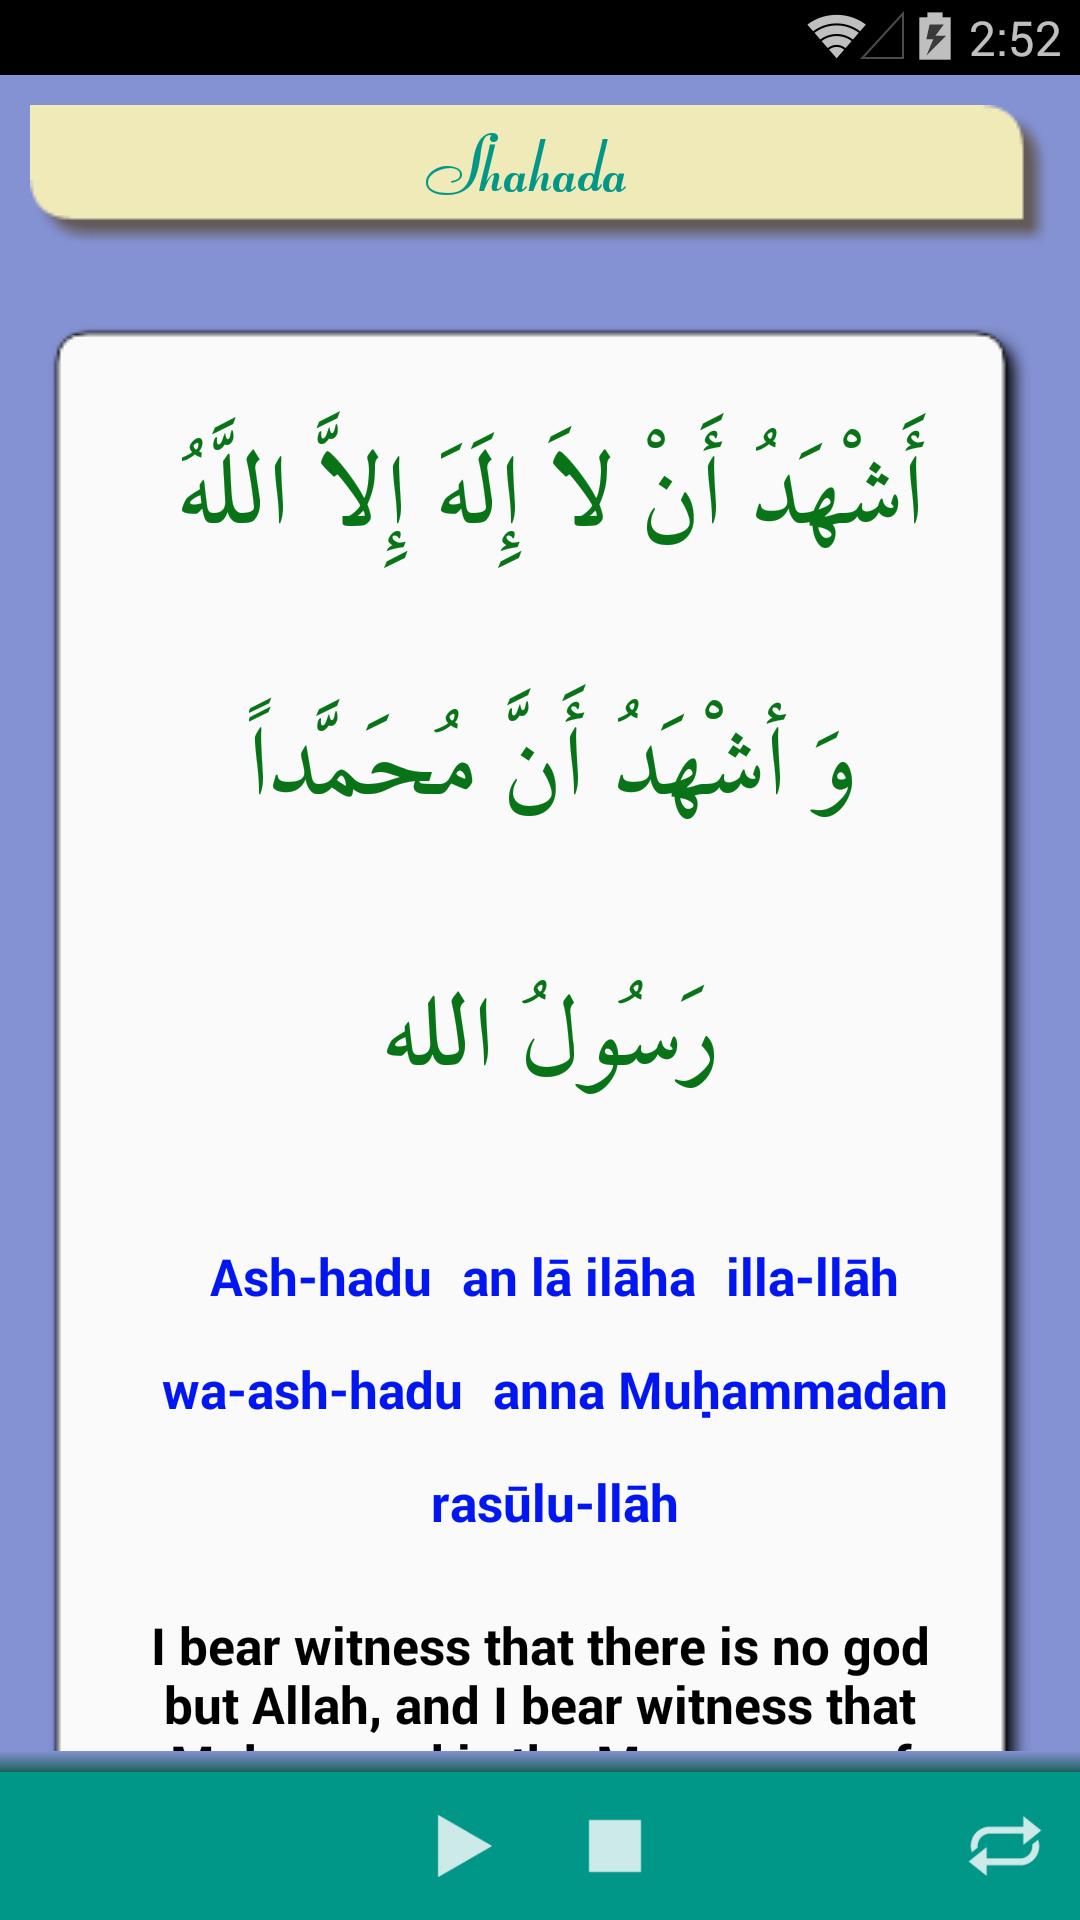 2:52
Shahada
أَشْهَدُ أَنْ لاَ إِلَهَ إِلاَّ اللَّهُ
وَ أشْهَدُ أَنَّ مُحَمَّداً
رَسُولُ الله
Ash-hadu an lā ilāha illa-llāh
wa-ash-hadu anna Muḥammadan
rasūlu-llāh
I bear witness that there is no god
but Allah, and I bear witness that